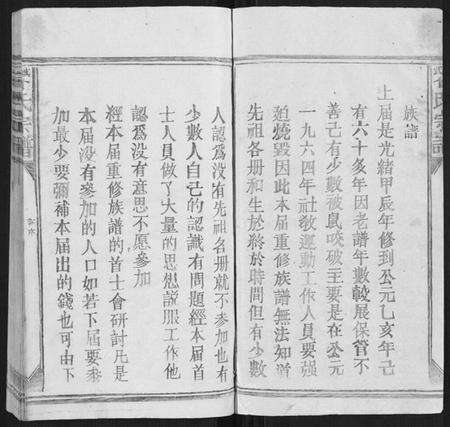 族譜
上屆是光緒甲辰年修到公元乙亥年己
有六十多年因老譜年數較展保管不
善己有少數被鼠咬破主要是在公元
一九六四年社教運動工作人員要強
迫燒毀因此本屆重修族譜無法知道
先祖各册和生於終於時間但有少數
人認爲没有先祖名册就不参加也有
少數人自己的認識有問題經本屆首
士人員做了大量的思想説服工作他
認爲没有意思不愿参加
經本屆重修族譜的首士會研討凡是
本屆没有参加的人口如若下屆要参
加最少要彌補本屆出的錢也可由下